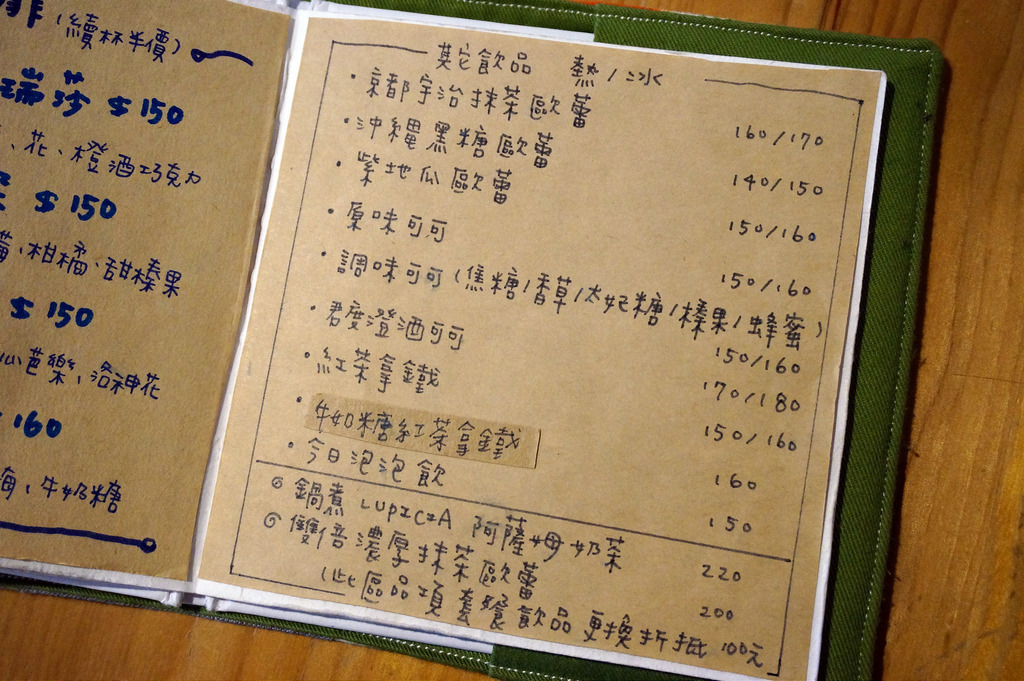 (續杯半價)
瑞莎 $150
、花、橙酒巧克力
$150
柑橘、甜榛果
$150
心芭樂、洛神花
160
海、牛奶糖
其它飲品 熱/冰
・京都宇治抹茶歐蕾 160/170
・沖繩黑糖歐蕾 140/150
・紫地瓜歐蕾 150/160
・原味可可 150/160
・調味可可(焦糖/香草/太妃糖/榛果/蜂蜜) 150/160
・君度澄酒可可 170/180
・紅茶拿鐵 150/160
・牛奶糖紅茶拿鐵 160
・今日泡泡飲 150
◎鍋煮 LUPICIA 阿薩姆奶茶 220
◎雙倍濃厚抹茶歐蕾 200
(此區品項套餐飲品更換折抵100元